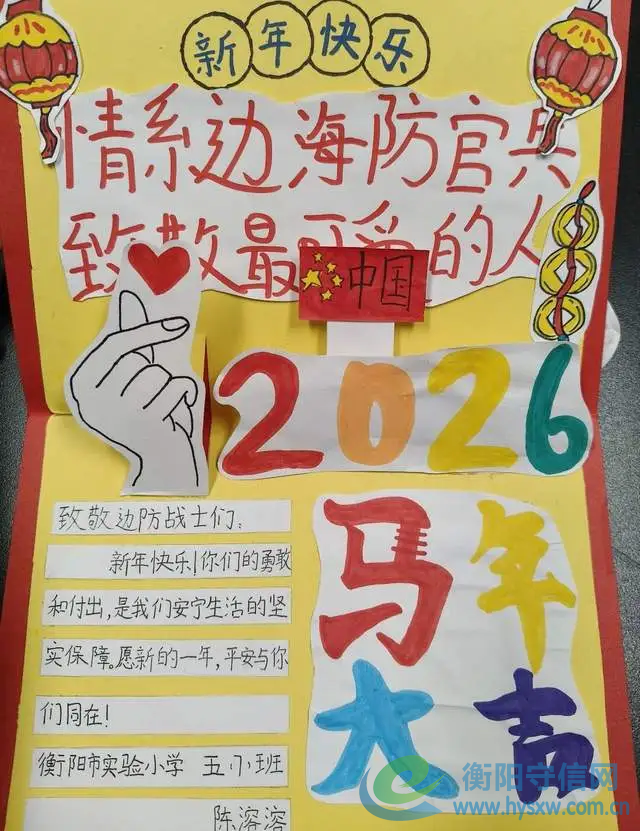 新年快乐
情系边海防官兵
致敬最可爱的人
中国
2026
致敬边防战士们:
新年快乐!你们的勇敢
和付出,是我们安宁生活的坚
实保障。愿新的一年,平安与你
们同在!
衡阳市实验小学 五(1)班
陈溶溶
马年
大吉
衡阳守信网
www.hysxw.com.cn